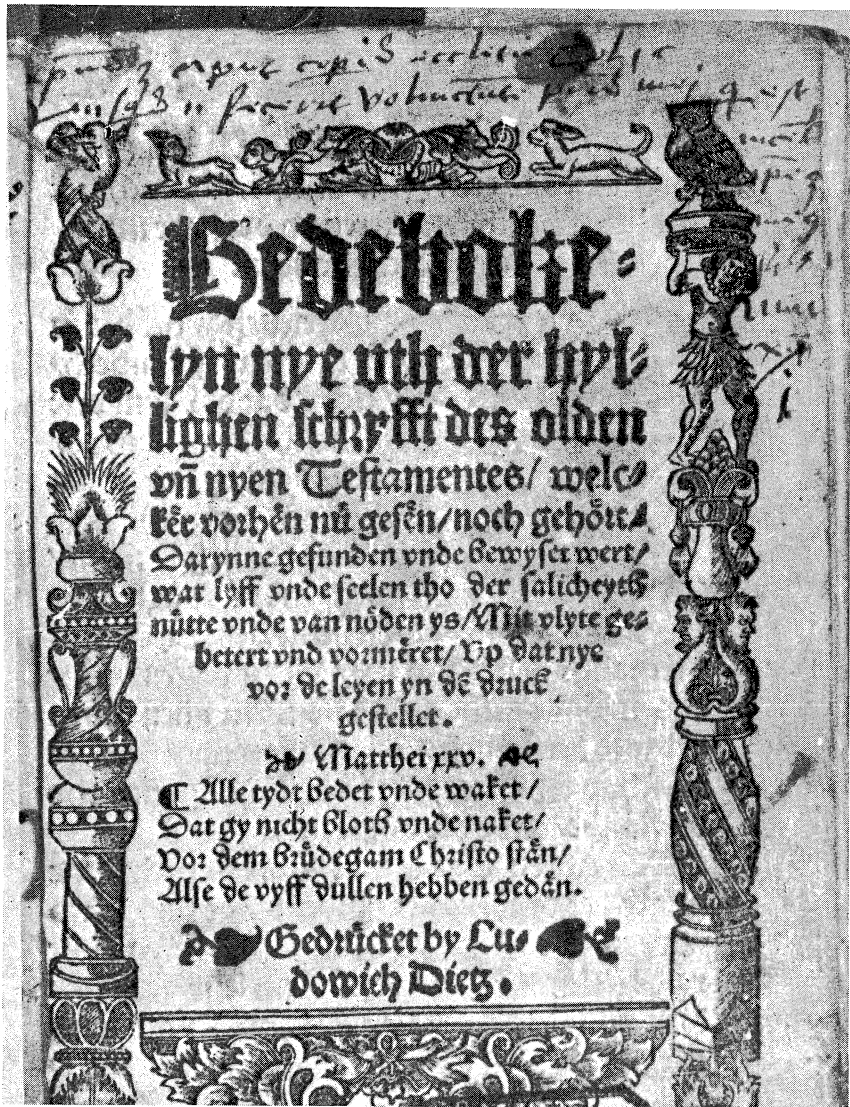 Gedeboke⸗
lyn nye uth der hyl⸗
lighen schryfft des olden
vñ nyen Testamentes/ welc⸗
kĕr vorhĕn nŭ gesĕn/noch gehŏrt⸗
Darynne gefunden vnde bewyset wert/
wat lyff vnde seelen tho der salicheyth
nŭtte vnde van nŏden ys/Mit vlyte ge⸗
betert vnd vormĕret/ Vp dat nye
vor de leyen yn dĕ druck
gestellet.
Matthei xxv.
¶ Alle tydt bedet vnde waket/
Dat gy nicht bloth vnde naket/
Vor dem brŭdegam Christo stăn/
Alse de vyff dullen hebben gedăn.
Gedrŭcket by Lu⸗
dowich Dietz.